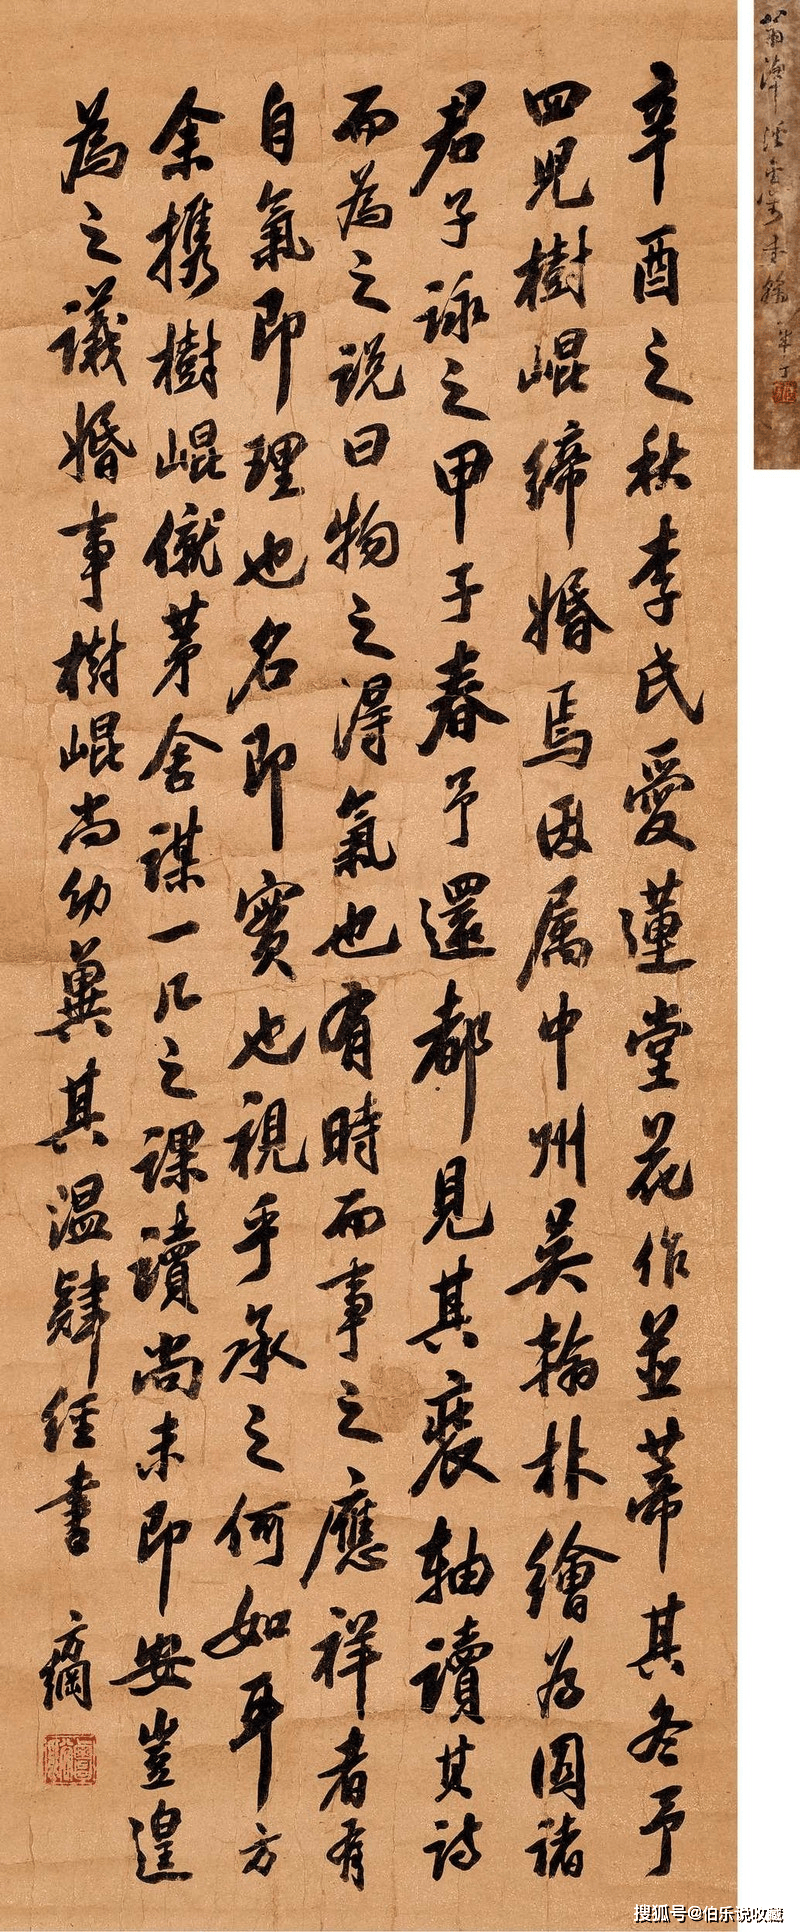 辛酉之秋李氏愛蓮堂花作並蒂其冬予
四兒樹崐締婚焉因屬中州吳翰林繪為圖諸
君子詠之甲子春予還都見其裝軸讀其詩
而為之説曰物之得氣也有時而事之應祥者有
自氣即理也名即實也視乎承之何如耳方
余攜樹崐僦茅舍謀一几之課讀尚未即安豈遑
為之議婚事樹崐尚幼冀其溫肄經書
翁
搜狐号@伯乐说收藏